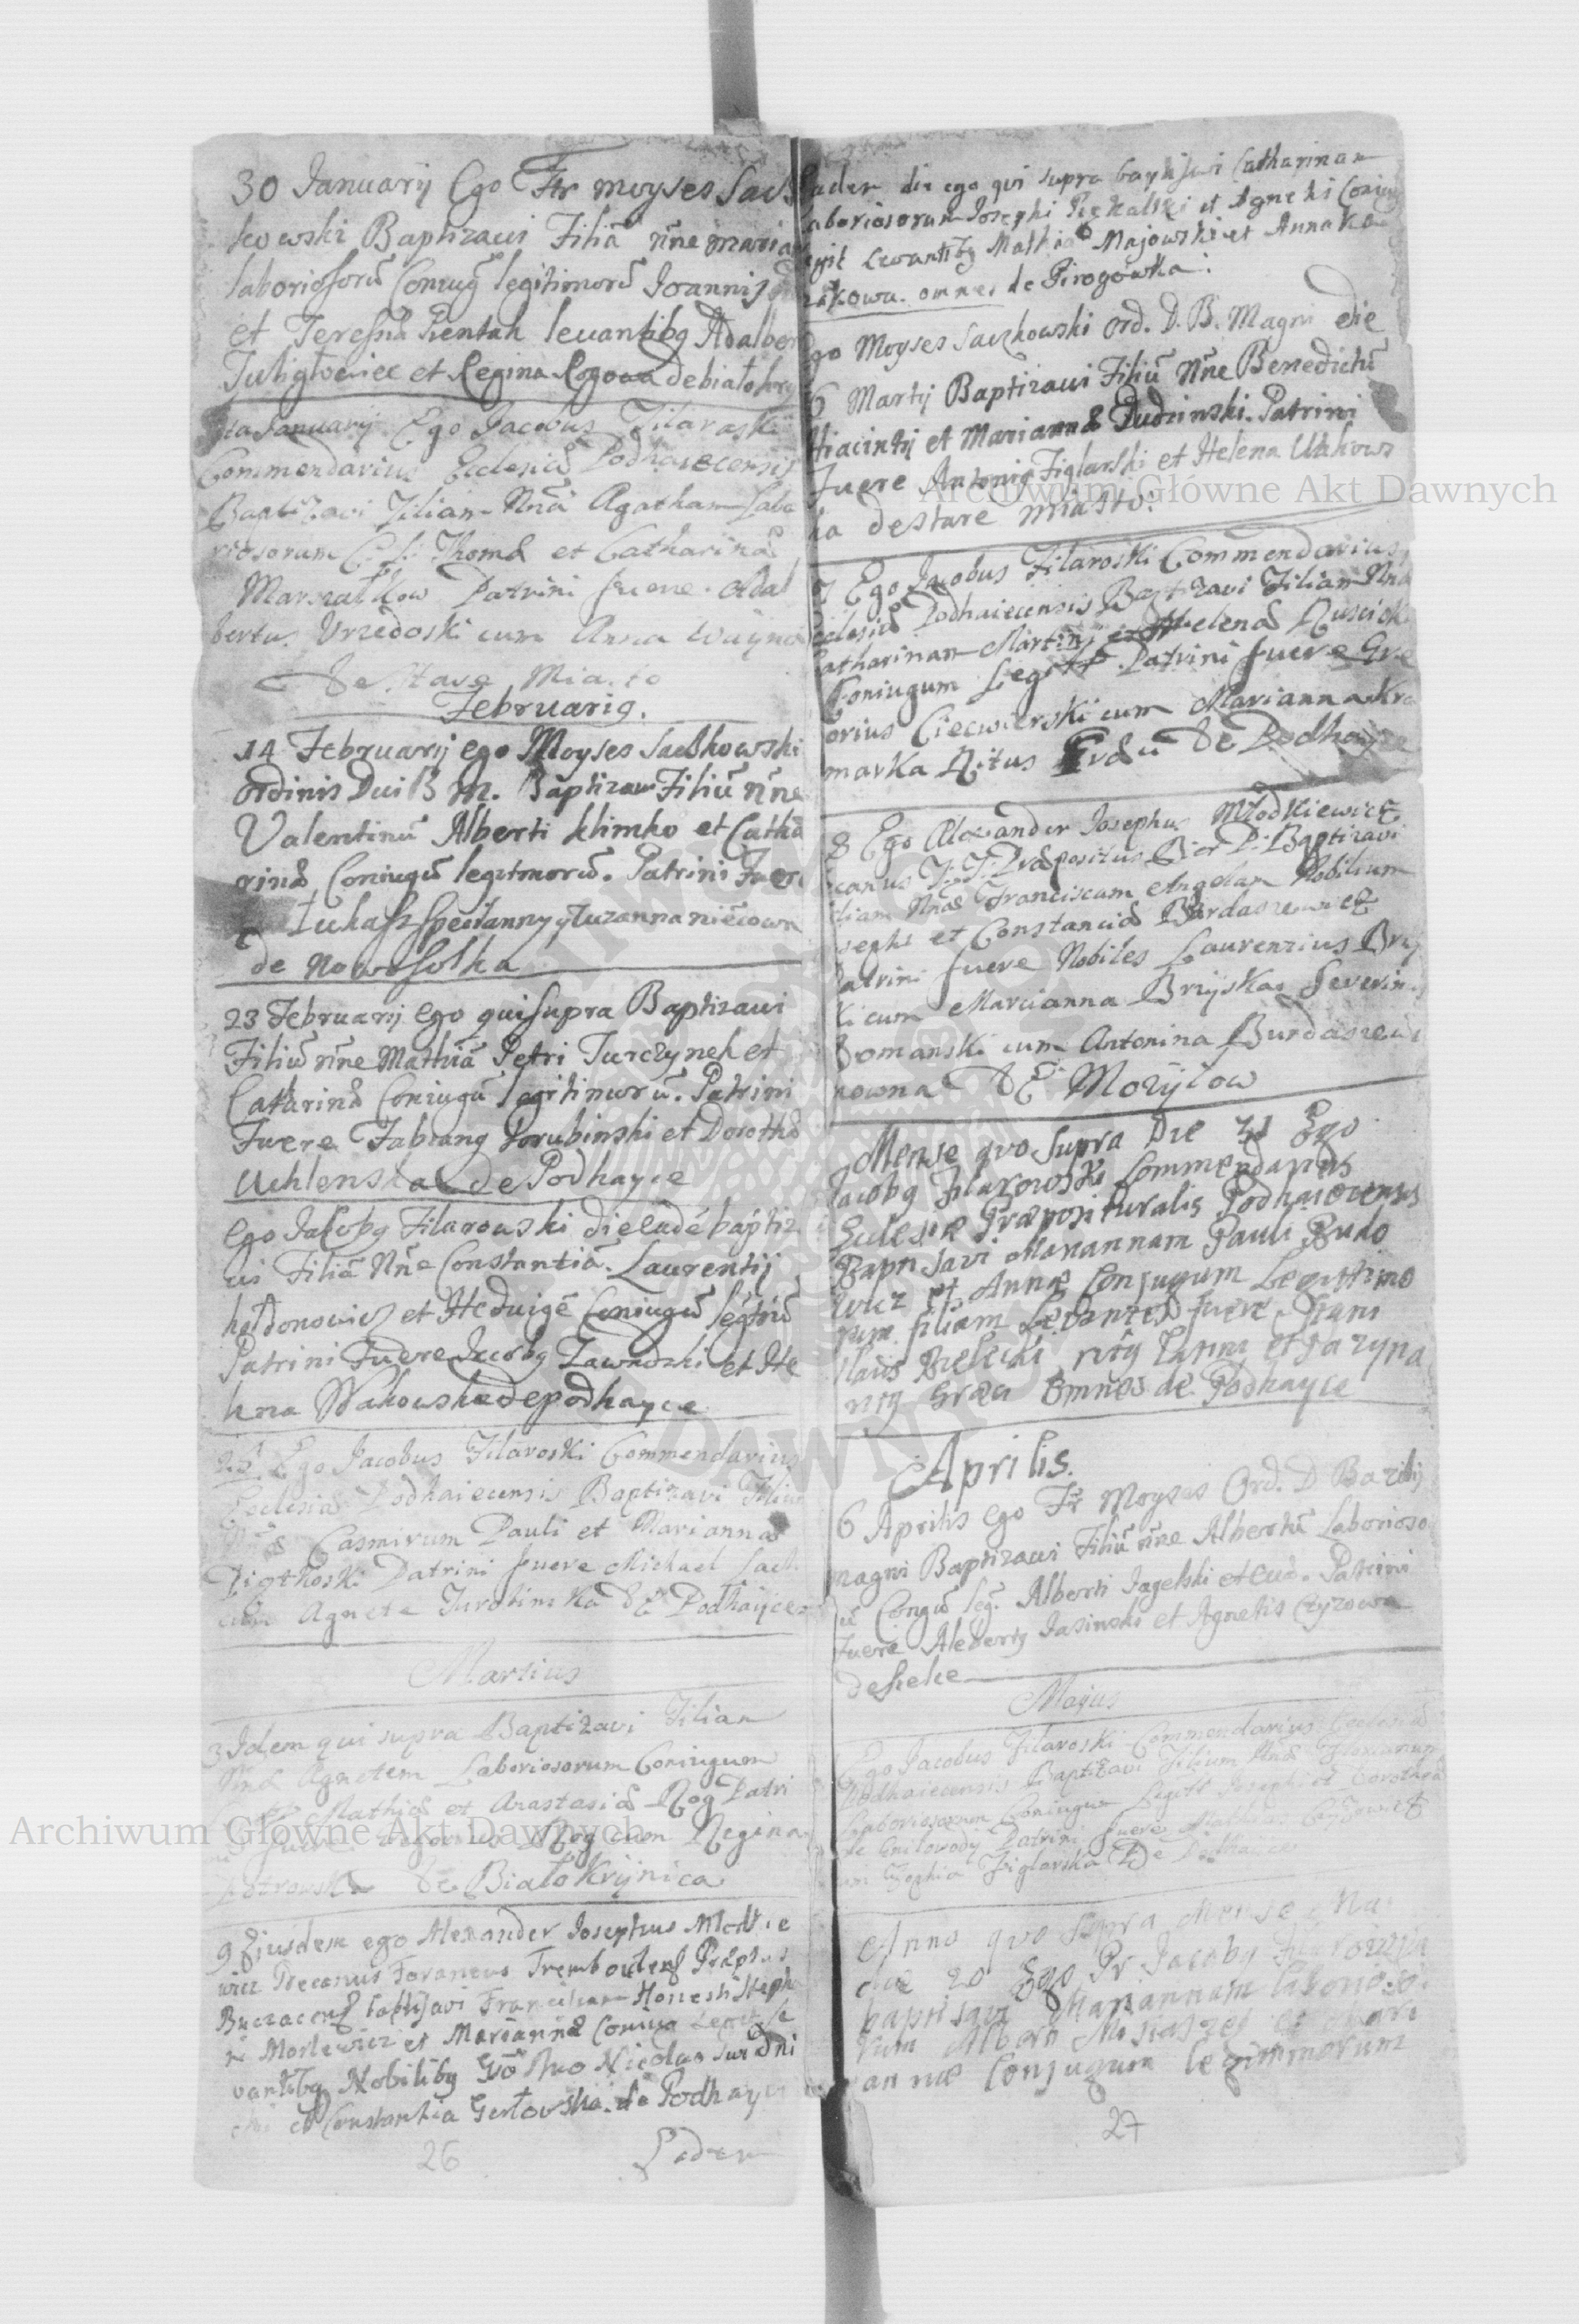 30 Januarij Ego Fr Moyses Sacz
kowski Baptizavi Filiã nñe Maria
laboriosorũ Coniug legitimorũ Joannis
et Teressæ Pientak levantibq Adalber
et Regina debiałokry
Januarij Ego Jacobus Filaroski
Commendarius Ecclesiæ Podhaiecensis
Baptizavi Filiam Nñæ Agatham Labo
riosorum C. L. Thomæ et Catharinæ
Marszałkow Patrini fuere Adal
bertus Urzedoski cum Anna Wayno
De Stare Miasto
Februarig.
14 Februarij ego Moyses Saczkowski
Ordinis Dui B M. Baptizavi Filiũ nñe
Valentinũ Alberti Klimko et Catha
rinæ Coniugũ legitmorũ. Patrini Fuere
Łukasz
de Nowosolka
23 Februarij ego qui supra Baptizavi
Filiũ nñe Mathiã Petri Jurczynek et
Catarinæ Coniugũ legitimorũ. Patrini
Fuere Fabiang Porubinski et Dorotha
Uchlenska de Podhayce
Ego Jacobq Filarowski die eadẽ baptiz
vi Filiã Nñe Constantiã. Laurentij
hołdonowicz et Hedvigẽ Coniugũ legtiũ
Patrini Fuere Jacobq Zawadzki et He
lena Wakowska de podhayce
25 Ego Jacobus Filaroski Commendarius
Ecclesiæ Podhaiecensis Baptizavi Filiu
Nñæ Casmirum Pauli et Mariannæ
Piotkoski Patrini fuere Michael Sach
cum Agneta Jurotinska De Podhaijce
Martius
3 Idem qui supra Baptizavi Filiam
Nñæ Agnetem Laboriosorum Coniugum
Mathiæ et Anastasiæ Rog Patri
ni fuere Rog cum Regina
Piotrowska De Białokrijnica
9 Eiusdem ego Alexander Josephus Młodkie
wicz Decanus Foraneus Trembovlens Præptus
Buczacens baptisavi Franciscam Honesti Steph
ni Moslewicz et Mariannæ Coniug Legit. le
vantibq Nobilibq Gõso Dno Nicolao
et Constantia Gertowska. de Podhayce
26 Eadem
Eadem die ego qvi supra baptisavi Catharinam
laboriosorum Josephi Piekalski et Agnetis Coniug
legit levantibq Mathia Majowski et Anna Ko
zakowa. omnes de Pirogowka.
Ego Moyses Saczkowski Ord. D. B. Magni die
6 Martij Baptizavi Filiũ Nñe Benedictũ
Hiacintij et Mariannæ Dudzinski. Patrini
Fuere Antoniq Figlarski et Helena Wakows
ka de stare miasto.
7 Ego Jacobus Filaroski Commendarius
Ecclesiæ Podhaiecensis Baptizavi Filiam Nnæ
Catharinam Martini et Helenæ Rusciok
Coniugum Legitt. Patrini fuere Gre
gorius Ciecwierski cum Marianna Kra
marka Ritus Græci De Podhayce
8 Ego Alexander Josephus Młodkiewicz
Decanus F. T. Præpositus Bier P. Baptizavi
Filiam Nñæ Franciscam Angelam Nobilium
Josephi et Constanciæ Burdasiewicz
Patrini fuere Nobiles Laurentius Brij
ski cum Marcianna Brzijska Severin
Domanski cum Antonina Burdasiewi
czowna DE Mozijlow
Mense qvo supra Die 21 Ego
Jacobq Filarowski Commendarius
Ecclesiæ Præposituralis Podhaiecensis
Baptisavi Mariannam Pauli Budo
wicz et Annæ Conjugum Legitimo
rum filiam Levantes fuere Stani
slaus Bielecki ritq Latini et Paryna
ritq Græci Omnes de Podhayce
Aprilis.
6 Aprilis ego Fr Moyses Ord. D Bazilij
magni Baptizavi Filiũ nñe Albertũ Laborioso
rũ Congũ leg. Alberti Jagelski et Evæ. Patrini
Fuere Albertq Jasinski et Agnetis Czyzowa
de
Majus
Ego Jacobus Filaroski Commendarius Ecclesiæ
Podhaiecensis Baptizavi Filium Nnæ Florianum
Laboriosorum Coniugum Legitt Josephi et Dorotheæ
de Gnilowody Patrini fuere
cum Zophia Figlarska De Podhayce
Anno qvo supra Mense Ma
die 20 Ego Pr Jacobq Filarowski
baptisavi Mariannam laborioso
rum Alberti et Mari
annæ Conjugum legitimorum
27
Archiwum Główne Akt Dawnych
Archiwum Główne Akt Dawnych